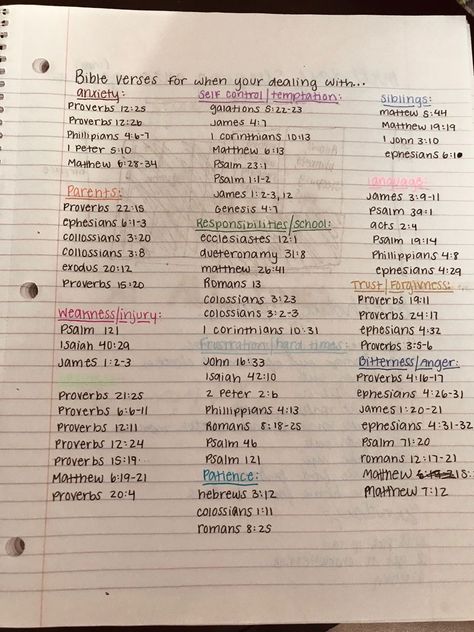 Bible verses for when your dealing with...
anxiety:
Proverbs 12:25
Proverbs 12:26
Phillipians 4:6-7
1 Peter 5:10
Matthew 6:28-34
Parents:
Proverbs 22:15
ephesians 6:1-3
collossians 3:20
collossians 3:8
exodus 20:12
Proverbs 15:20
Weakness/injury:
Psalm 121
Isaiah 40:29
James 1:2-3
Proverbs 21:25
Proverbs 6:6-11
Proverbs 12:11
Proverbs 12:24
Proverbs 15:19
Matthew 6:19-21
Proverbs 20:4
Self control/temptation:
galations 5:22-23
James 4:7
1 corinthians 10:13
Matthew 6:13
Psalm 23:1
Psalm 1:1-2
James 1:2-3, 12
Genesis 4:7
Responsibilities/school:
ecclesiastes 12:1
dueteronomy 31:8
matthew 26:41
Romans 13
colossians 3:23
colossians 3:2-3
1 corinthians 10:31
Frustration/hard times:
John 16:33
Isaiah 42:10
2 Peter 2:b
Phillippians 4:13
Romans 8:18-25
Psalm 46
Psalm 121
Patience:
hebrews 3:12
colossians 1:11
romans 8:25
Siblings:
mattew 5:44
Matthew 19:19
1 John 3:10
ephesians 6:10
language:
James 3:9-11
Psalm 39:1
acts 2:4
Psalm 19:14
Phillippians 4:8
ephesians 4:29
Trust/Forgivness:
Proverbs 19:11
Proverbs 24:17
ephesians 4:32
Proverbs 3:5-6
Bitterness/Anger:
Proverbs 4:16-17
ephesians 4:26-31
James 1:20-21
ephesians 4:31-32
Psalm 71:20
romans 12:17-21
Matthew
Matthew 7:12